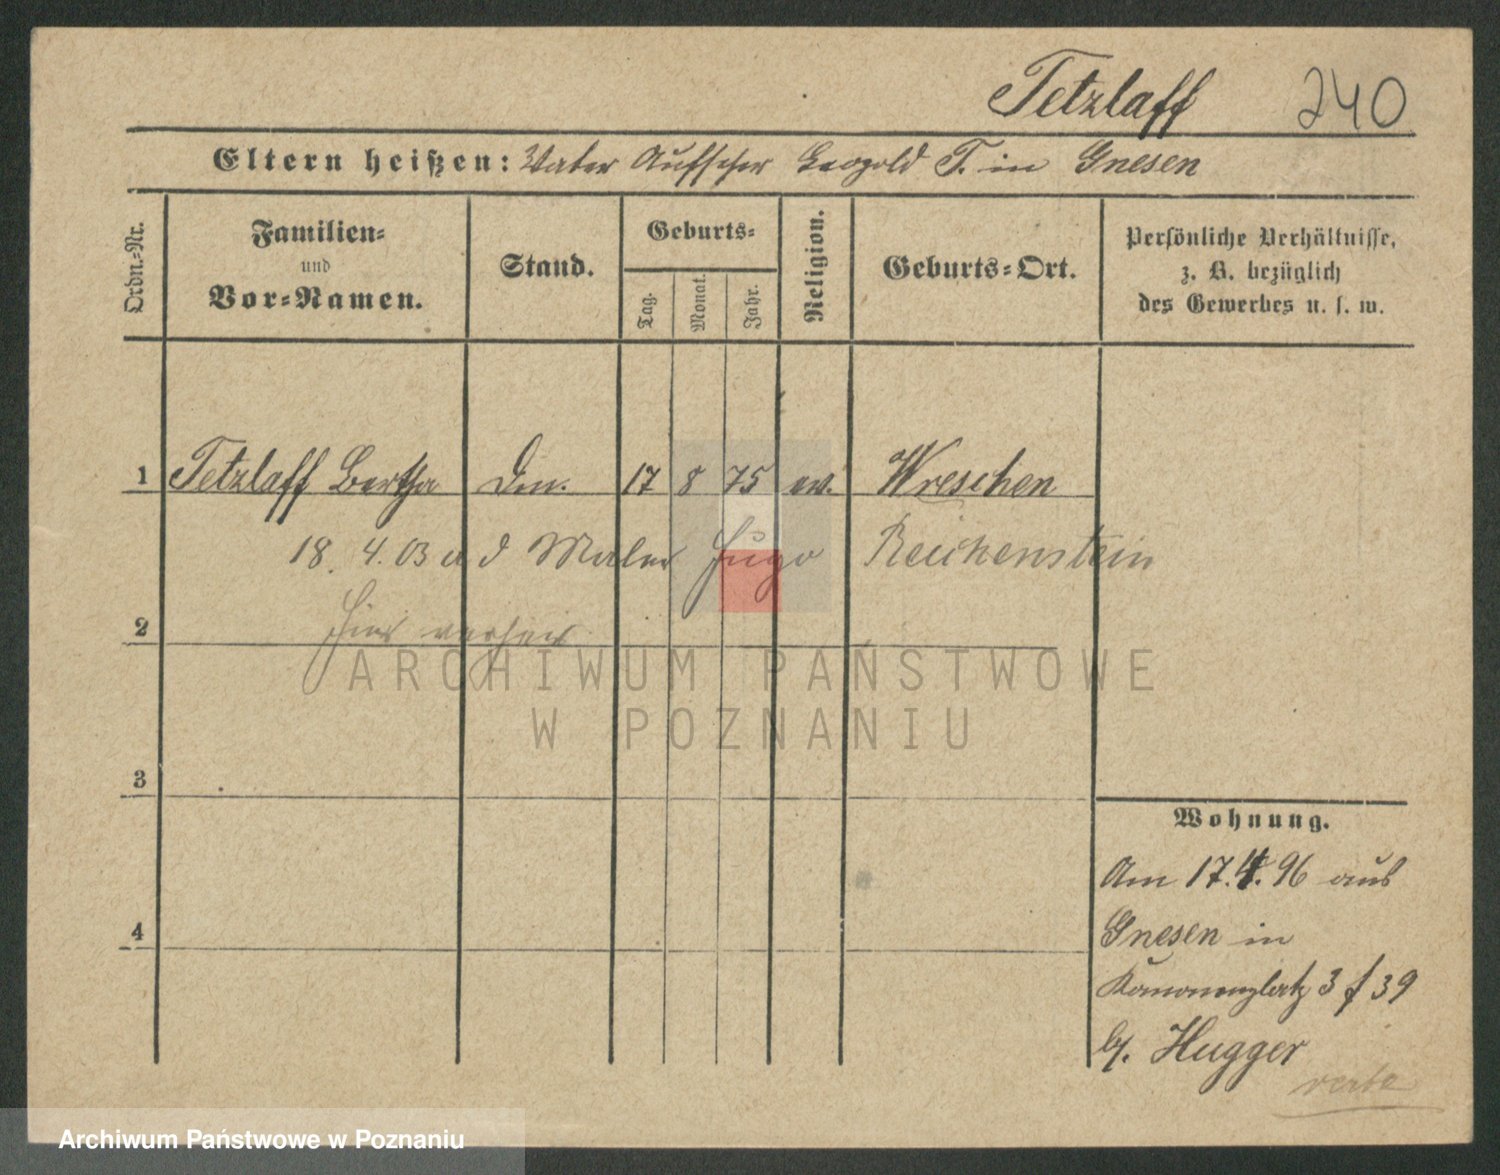 Tetzlaff 240
Eltern heißen: Vater Aufseher Leopold T. in Gnesen
Ordn.-Nr.
Familien-
und
Vor-Namen.
Stand.
Geburts-
Tag.
Monat.
Jahr.
Religion.
Geburts-Ort.
Persönliche Verhältnisse,
z. B. bezüglich
des Gewerbes u. s. w.
1 Tetzlaff Bertha 17 8 75 ev. Wreschen
18. 4. 03 a d Maler Hugo Reichenstein
hier verheir
2
ARCHIWUM PAŃSTWOWE
W POZNANIU
3
4
Wohnung.
Am 17.4.96 aus
Gnesen in
Kanonenplatz 3 f 39
b/. Hugger
Archiwum Państwowe w Poznaniu